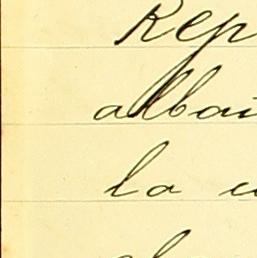 Rep
albai
la u